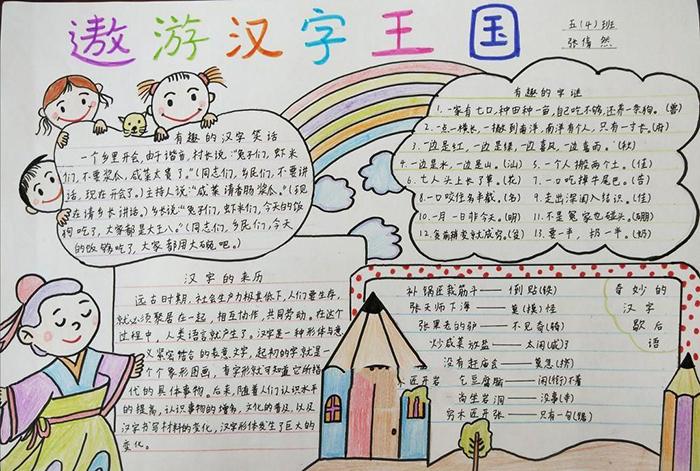 遨游汉字王国
五(4)班
张倩然
有趣的汉字笑话
一个乡里开会,由于谐音,村长说:“兔子们,虾米
们,不要浆瓜,咸菜太贵了。”(同志们,乡民们,不要讲
话,现在开会了。)主持人说:“咸菜请香肠浆瓜。”(现
在请乡长讲话。)乡长说:“兔子们,虾米们,今天的饭
狗吃了,大家都是大王八。”(同志们,乡民们,今天
的饭够吃了,大家都用大碗吧。)
有趣的字谜
1.一家有七口,种田种一亩,自己吃不够,还养一条狗。(兽)
2.一点一横长,一撇到南洋,南洋有个人,只有一寸长。(府)
3.一边是红,一边是绿,一边喜风,一边喜雨。(秋)
4.一边是水,一边是山。(汕)
5.一个人搬两个土。(佳)
6.七人头上长了草。(花)
7.一口吃掉牛尾巴。(告)
8.一口咬住多半截。(名)
9.走出深闺人结识。(佳)
10.一月一日非今天。(明)
11.不是冤家也碰头。(硼)
12.
13.要一半,扔一半。(奶)
汉字的来历
远古时期,社会生产力极其低下,人们要生存,
就必须聚居在一起,相互协作,共同劳动。在这个
过程中,人类语言就产生了。汉字是一种形体与意
义紧密结合的表意文字,起初的字就是一
个个象形图画,看字形就可知道它所指
代的具体事物。后来,随着人们认识水平
的提高,认识事物的增多,文化的普及,以及
汉字书写材料的变化,汉字形体发生了巨大的
变化。
奇妙的
汉字
歇后
语
补锅匠栽筋斗——倒贴(铁)
张天师下海——莫(摸)怪
张果老的驴——不见奇(骑)
炒咸菜放盐——太闲(咸)了
没有赶庙会——莫急(挤)
乞豆腐脑——闲(衔)不着
尚坐岩洞——没事(寺)
穷木匠开张——只有一句(锯)